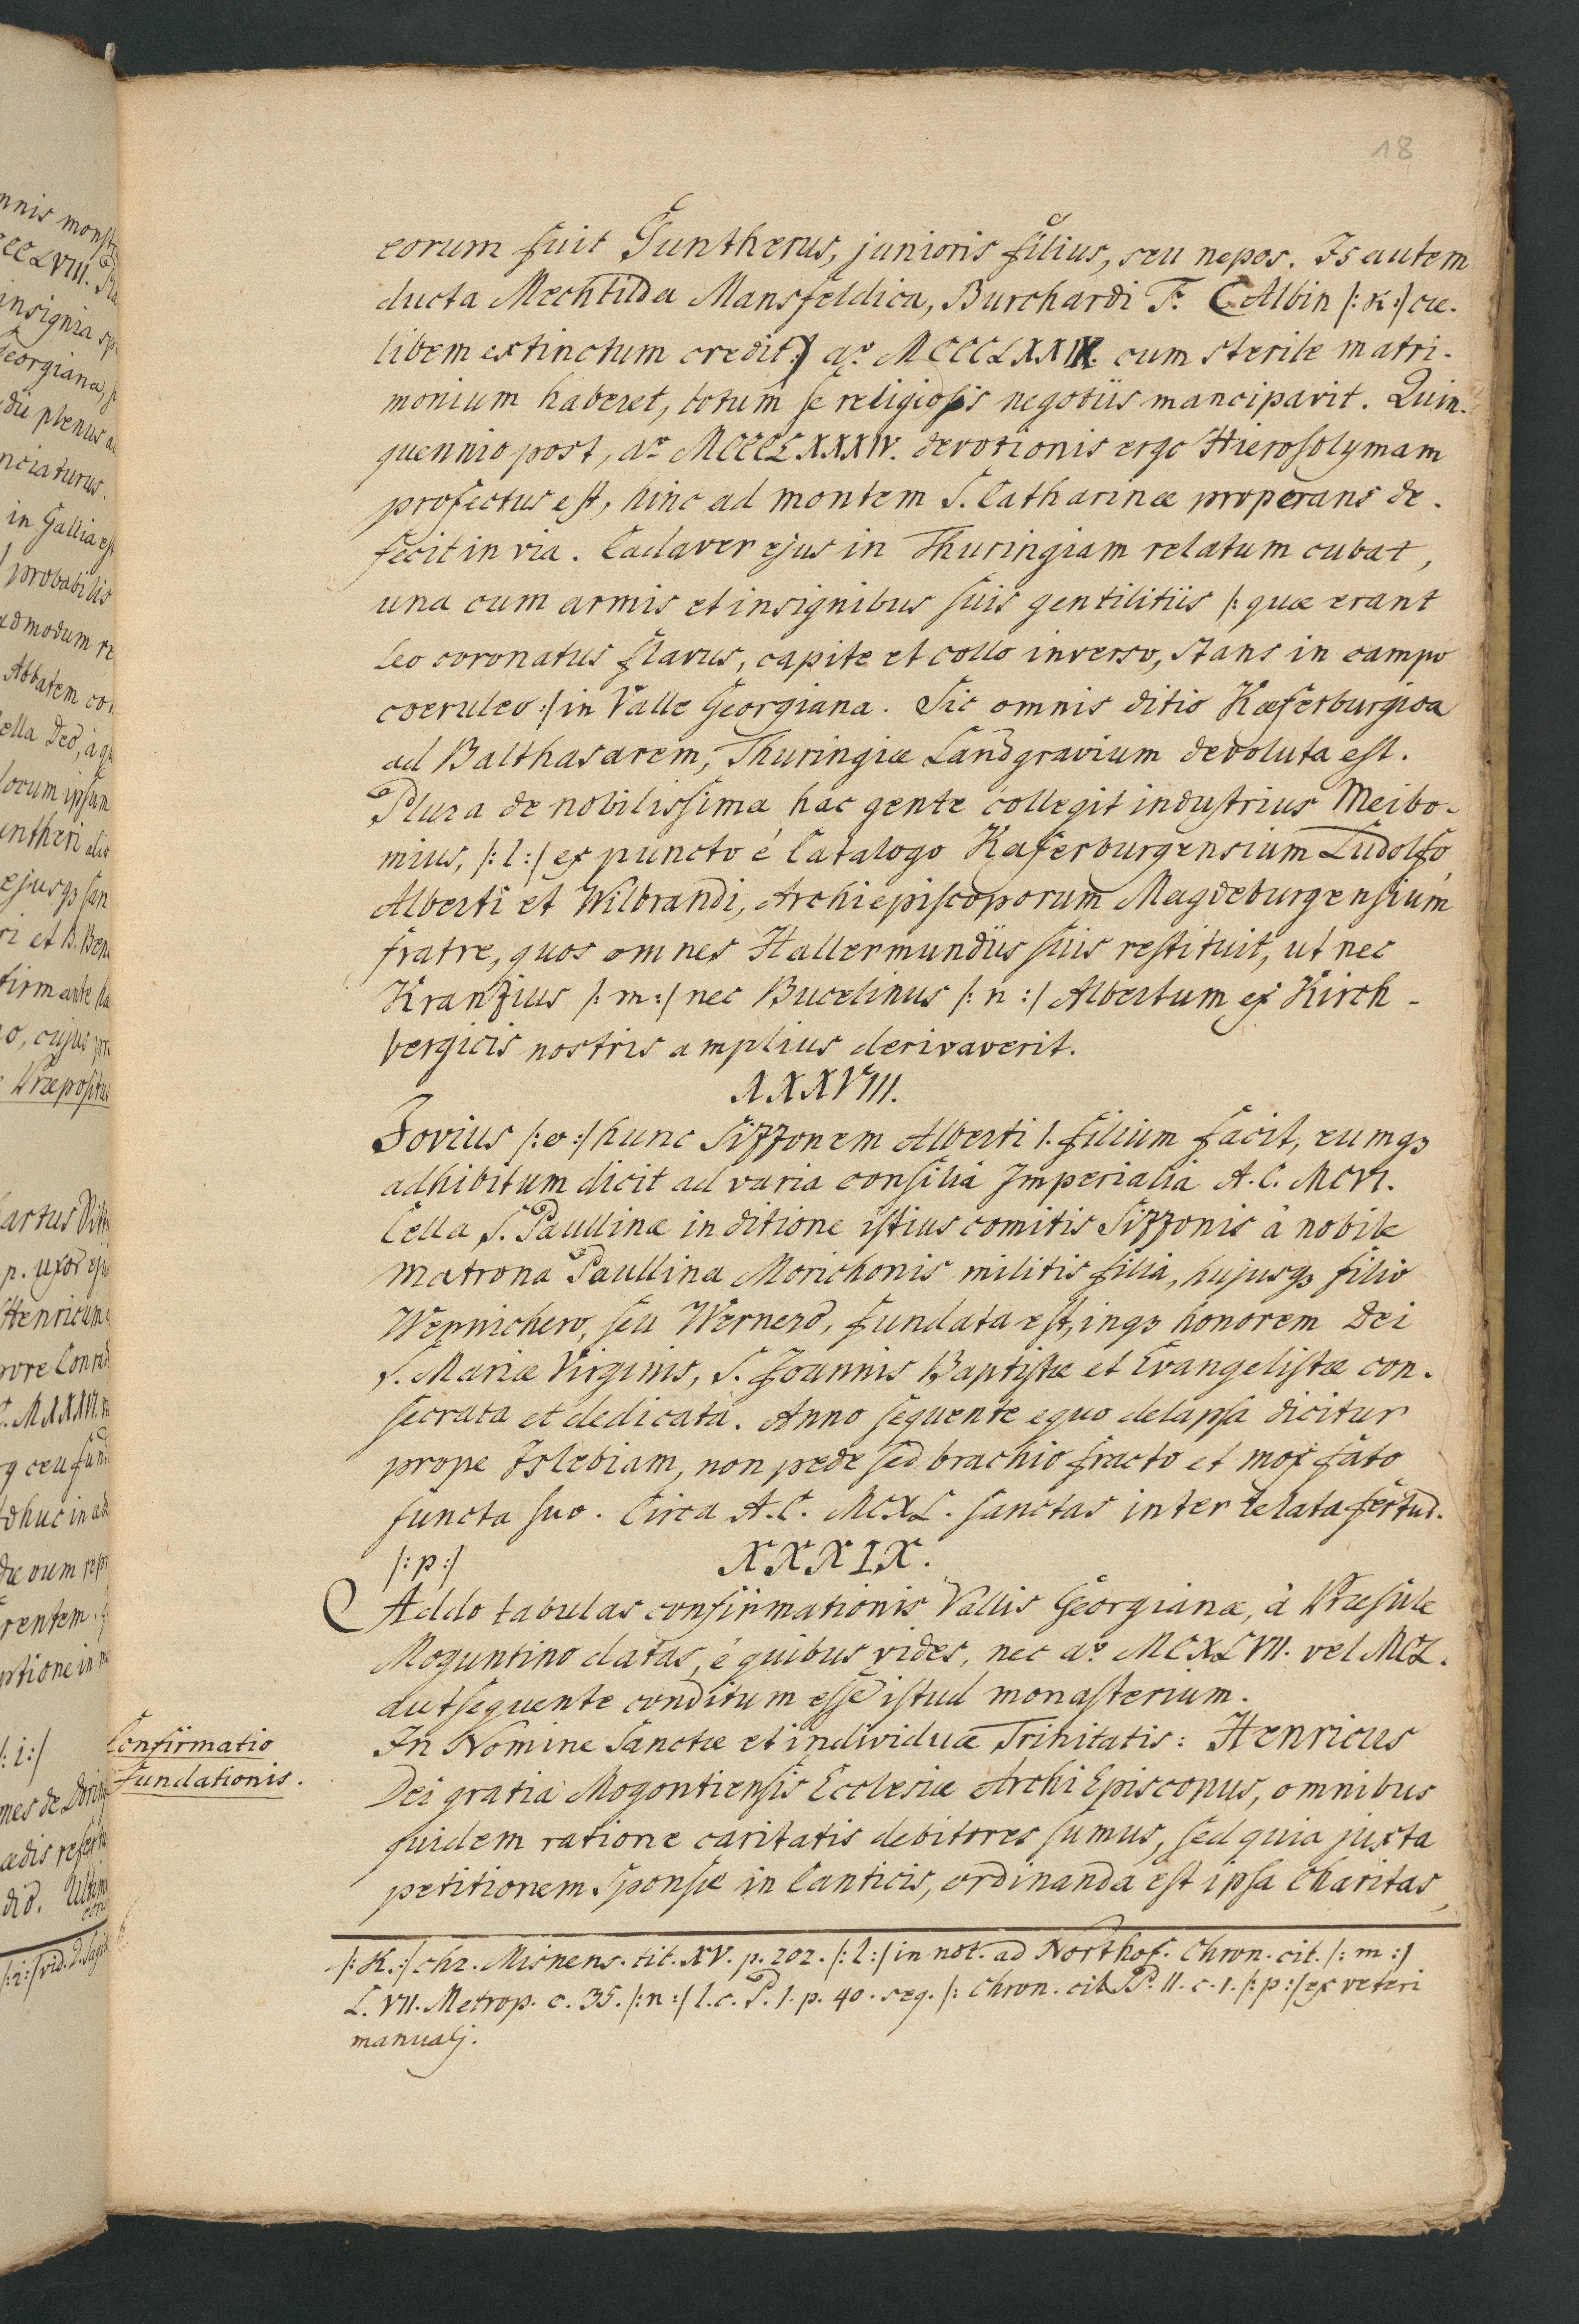 18
eorum fuit Guntherus, junioris filius, seu nepos. Is autem
ducta Mechtilda Mansfeldica, Burchardi F. (Albin /: K :/ cæ-
libem extinctum credit) aº MCCCLXXIX. cum sterile matri-
monium haberet, totum se religiosis negotiis mancipavit. Quin-
quennio post, aº MCCCLXXXIV. devotionis ergo Hierosolymam
profectus est, hinc ad montem S. Catharinæ properans de-
fecit in via. Cadaver ejus in Thuringiam relatum cubat,
una cum armis et insignibus suis gentilitiis /: quæ erant
Leo coronatus flavus, capite et collo inverso, stans in campo
coeruleo :/ in Valle Georgiana. Sic omnis ditio Kæferburgica
ad Balthasarem, Thuringiæ Landgravium devoluta est.
Plura de nobilissima hac gente collegit industrius Meibo-
mius, /: l :/ expuncto è Catalogo Kæferburgensium Ludolfo,
Alberti et Wilbrandi, Archiepiscoporum Magdeburgensium
fratre, quos omnes Hallermundiis suis restituit, ut nec
Kranzius /: m :/ nec Bucelinus /: n :/ Albertum ex Kirch-
bergicis nostris amplius derivaverit.
XXXVIII.
Jovius /: o :/ hunc Sizzonem Alberti I. filium facit, eumqꝫ
adhibitum dicit ad varia consilia Imperialia A. C. MCVI.
Cella S. Paullinæ in ditione istius comitis Sizzonis à nobile
matrona Paullina Morichonis militis filia, hujusqꝫ filio
Wernichero, seu Wernero, fundata est, inqꝫ honorem Dei
S. Mariæ Virginis, S. Joannis Baptistæ et Evangelistæ con-
secrata et dedicata. Anno sequente equo delapsa dicitur
prope Islebiam, non pede sed brachio fracto et mox fato
functa suo. Circa A. C. MCXL. sanctas inter relata fertur.
/: p :/ XXXIX.
Addo tabulas confirmationis Vallis Georgianæ, à Præsule
Moguntino datas, è quibus vides, nec aº MCXLVII. vel MCL.
aut sequente conditum esse istud monasterium.
Confirmatio
Fundationis.
In Nomine Sanctæ et individuæ Trinitatis: Henricus
Dei gratia Mogontiensis Ecclesiæ ArchiEpiscopus, omnibus
quidem ratione caritatis debitores sumus, sed quia juxta
petitionem sponsæ in Canticis, ordinanda est ipsa Charitas,
/: K :/ chr. Misnens. tit. XV. p. 202. /: l :/ in not. ad Northof. Chron. cit. /: m :/
L. VII. Metrop. c. 35. /: n :/ l. c. P. 1. p. 40. seq. /: Chron. cit. P. II. c. 1. /: p :/ ex veteri
manualj.